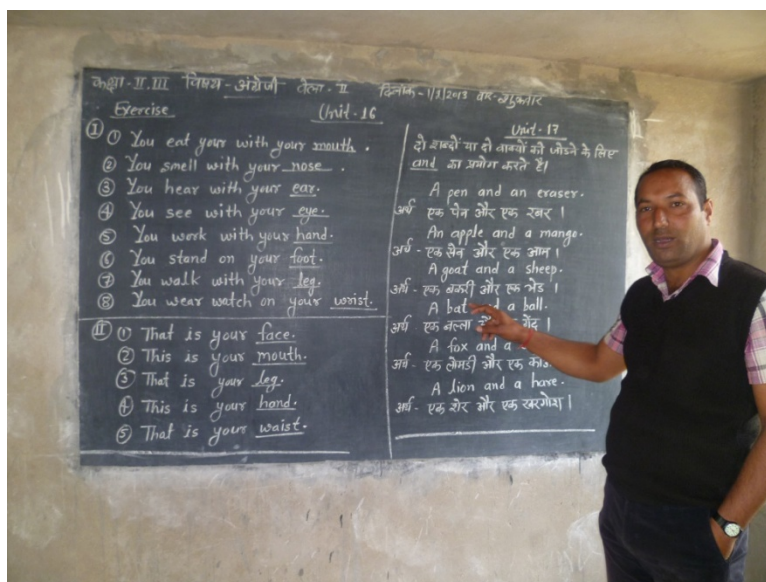 कक्षा - II, III विषय - अंग्रेजी - वेला - II दिनांक - 1/3/2013 वार - शुक्रवार
Exercise Unit - 16
I ① You eat your with your mouth .
② You smell with your nose .
③ You hear with your ear.
④ You see with your eye.
⑤ You work with your hand.
⑥ You stand on your foot.
⑦ You walk with your leg.
⑧ You wear watch on your wrist.
II ① That is your face.
② This is your mouth.
③ That is your leg.
④ This is your hand.
⑤ That is your waist.
Unit - 17
दो शब्दों या दो वाक्यों को जोडने के लिए
and का प्रयोग करते है।
A pen and an eraser.
अर्थ - एक पेन और एक रबर ।
An apple and a mango.
अर्थ - एक सेब और एक आम ।
A goat and a sheep.
अर्थ - एक बकरी और एक भेड ।
A bat and a ball.
अर्थ - एक बल्ला गेंद ।
A fox and a
अर्थ - एक लोमडी और एक
A lion and a hare.
अर्थ - एक शेर और एक खरगोश ।